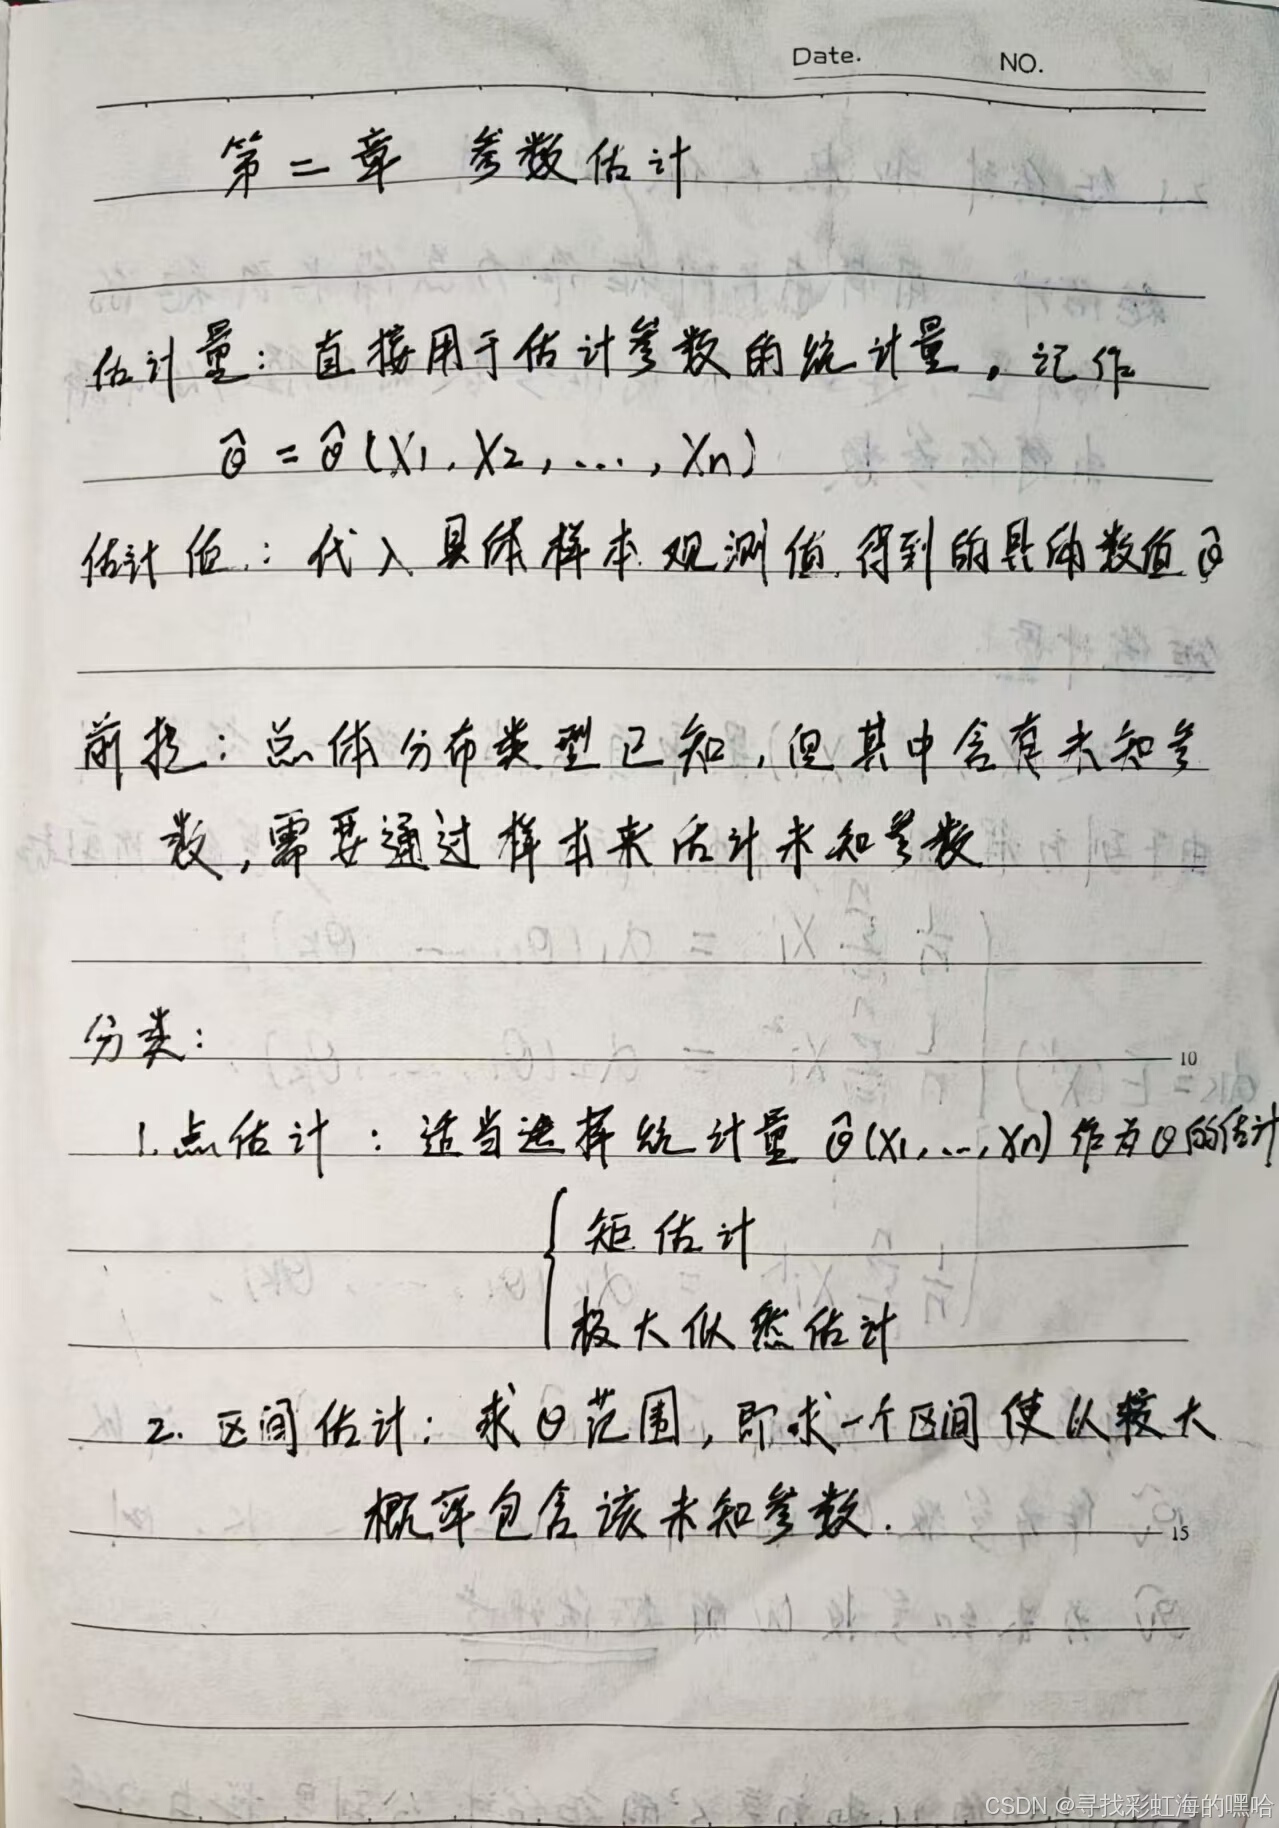 Date. NO.
第二章 参数估计
估计量：直接用于估计参数的统计量，记作
θ̂ = θ̂(X1, X2, ..., Xn)
估计值：代入具体样本观测值得到的具体数值 θ̂
前提：总体分布类型已知，但其中含有未知参
数，需要通过样本来估计未知参数
分类：
10
1.点估计：适当选择统计量 θ̂(X1, ..., Xn) 作为θ的估计
{ 矩估计
极大似然估计
2. 区间估计：求θ范围，即求一个区间使以较大
概率包含该未知参数.
15
CSDN @寻找彩虹海的嘿哈